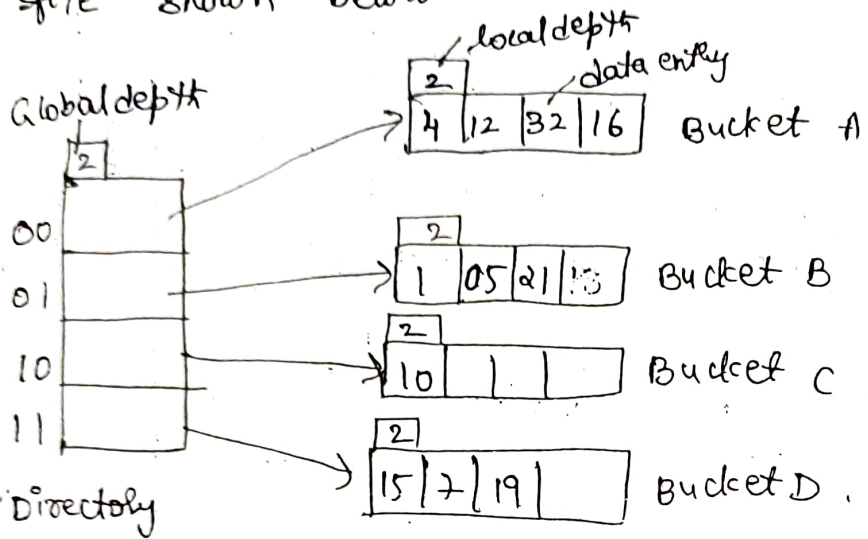 file shown below
local depth
2
data entry
Global depth
4 12 32 16 Bucket A
2
00
2
01
1 05 21 Bucket B
2
10
10 Bucket C
11
2
15 7 19 Bucket D.
Directoly